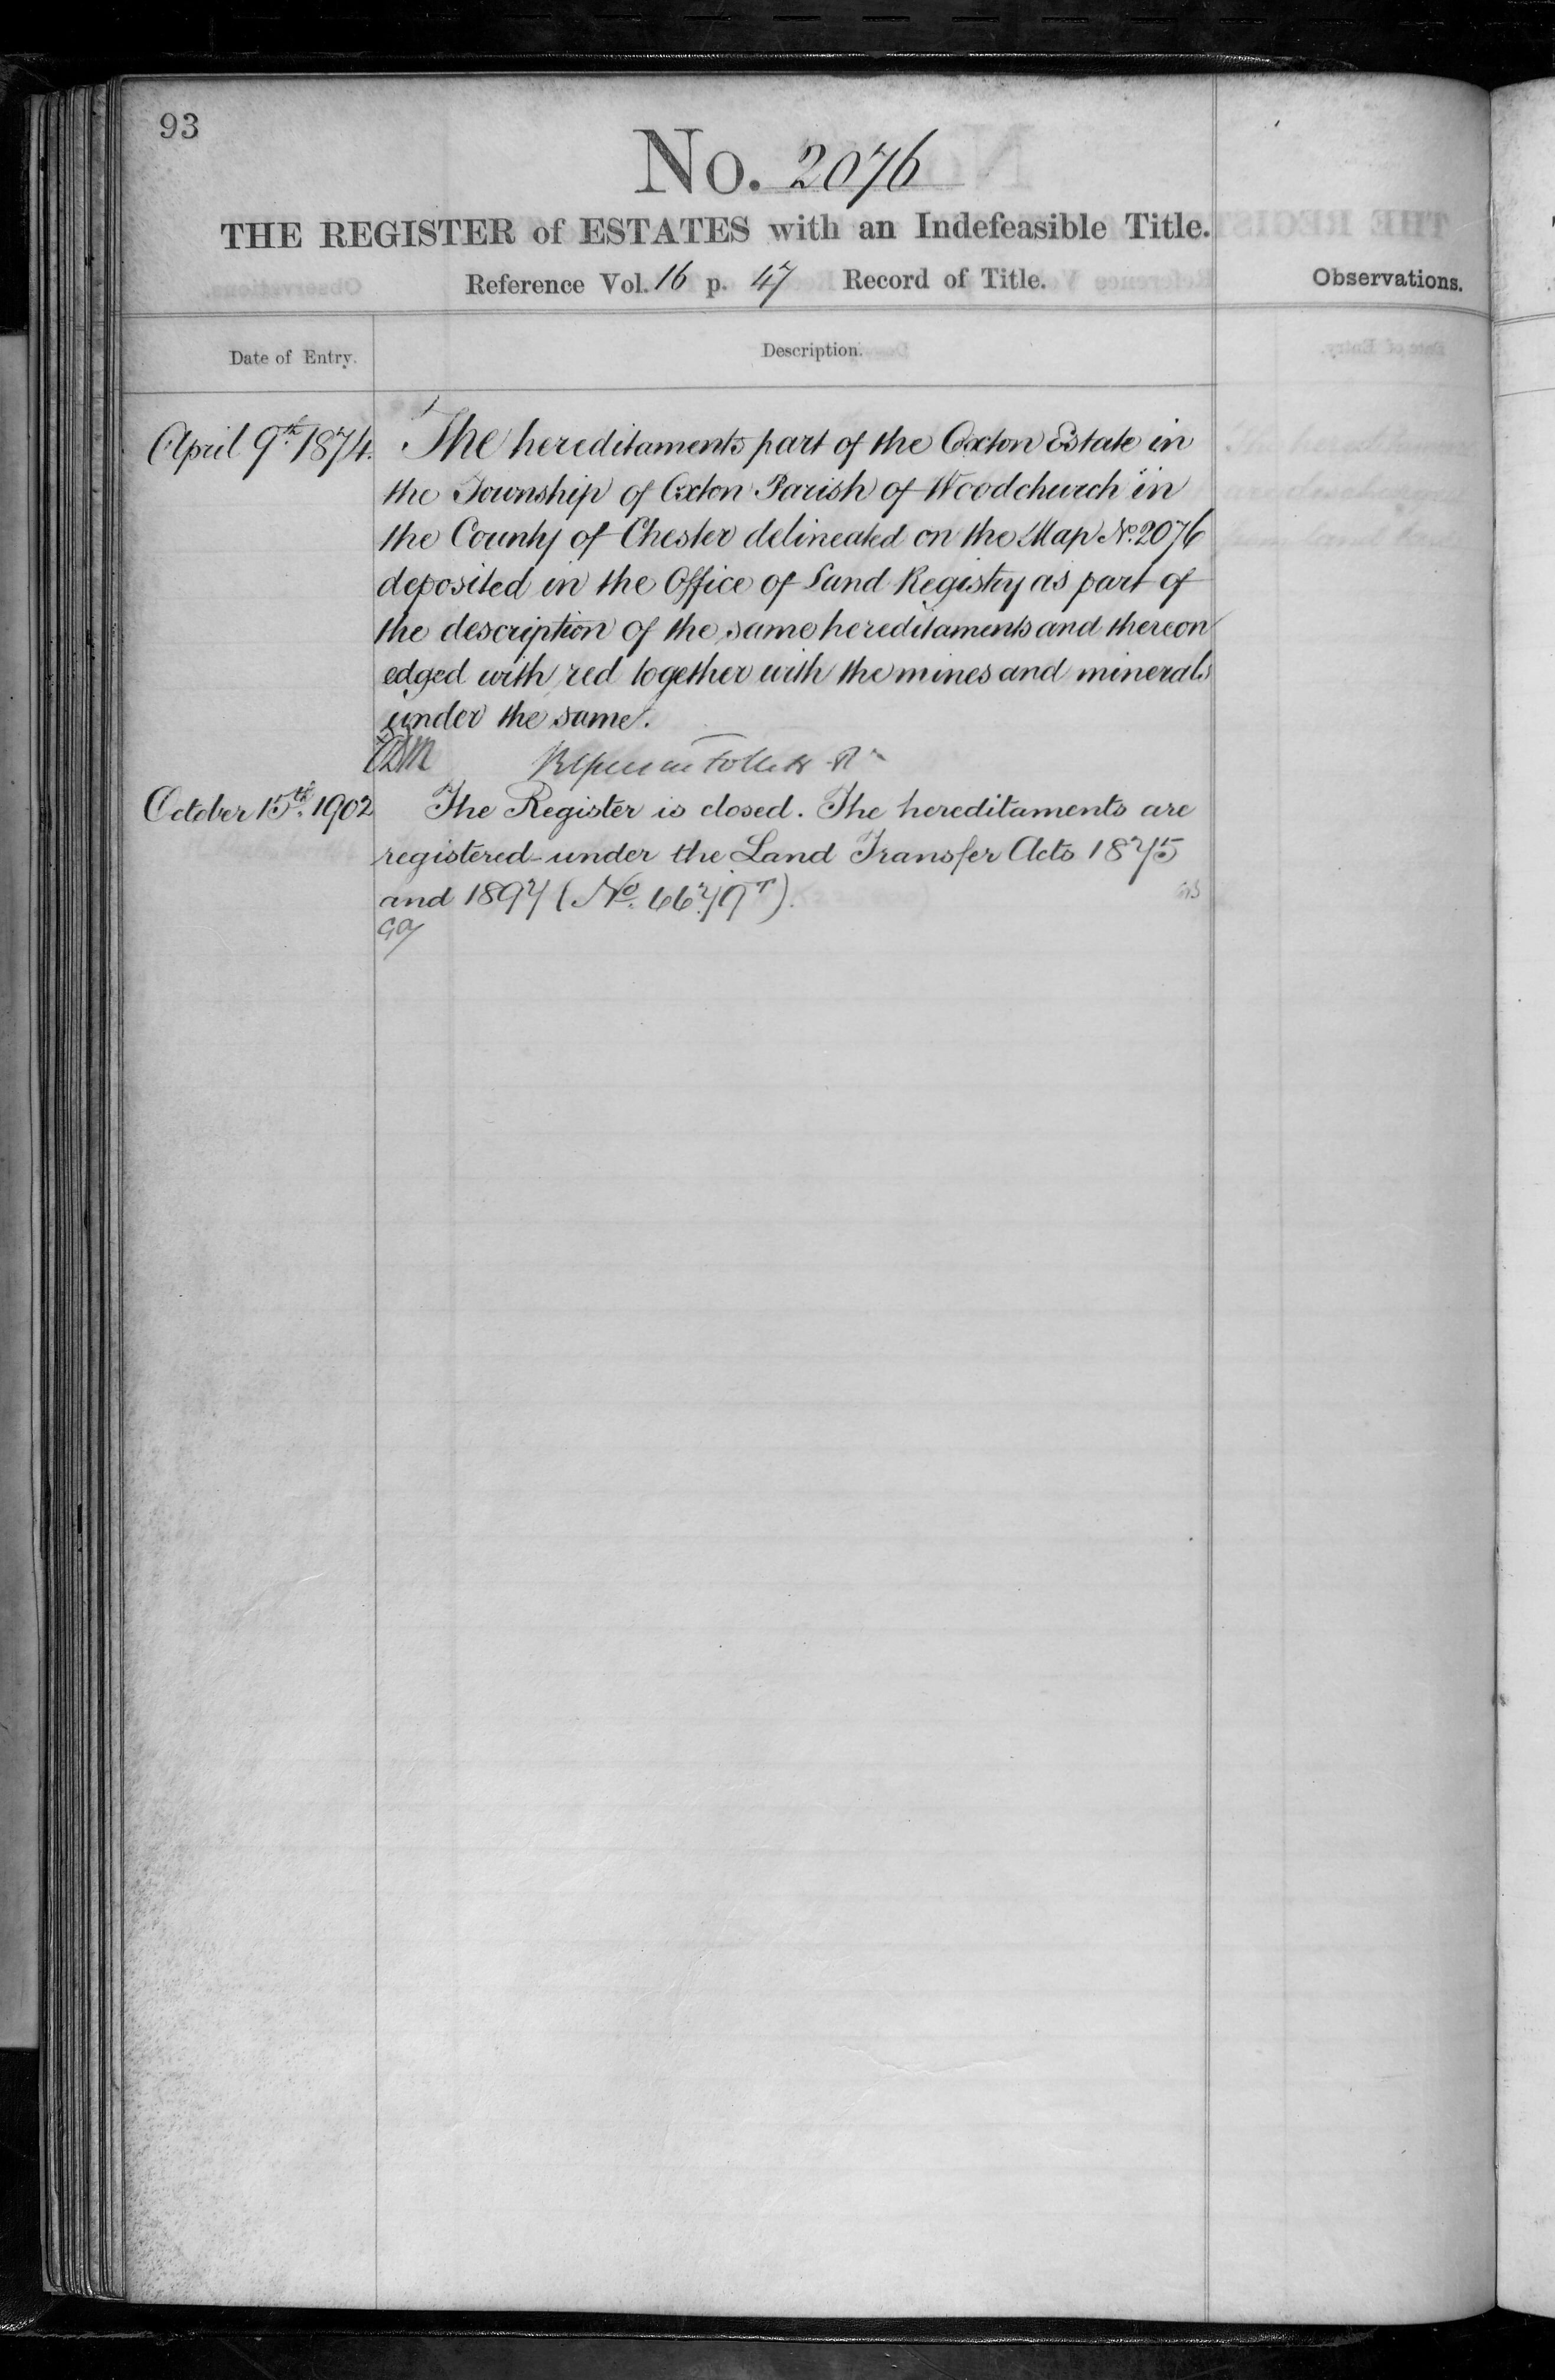 93
No. 2076
THE REGISTER of ESTATES with an Indefeasible Title.
Reference Vol. 16 p. 47 Record of Title.
Observations.
Date of Entry.
Description.
April 9th. 1874. The hereditaments part of the Oxton Estate in
the Township of Oxton Parish of Woodchurch in
the County of Chester delineated on the Map No. 2076
deposited in the Office of Land Registry as part of
the description of the same hereditaments and thereon
edged with red together with the mines and minerals
under the same.
Follett
October 15th. 1902 The Register is closed. The hereditaments are
registered under the Land Transfer Acts 1875
and 1897 (No. 6679T).